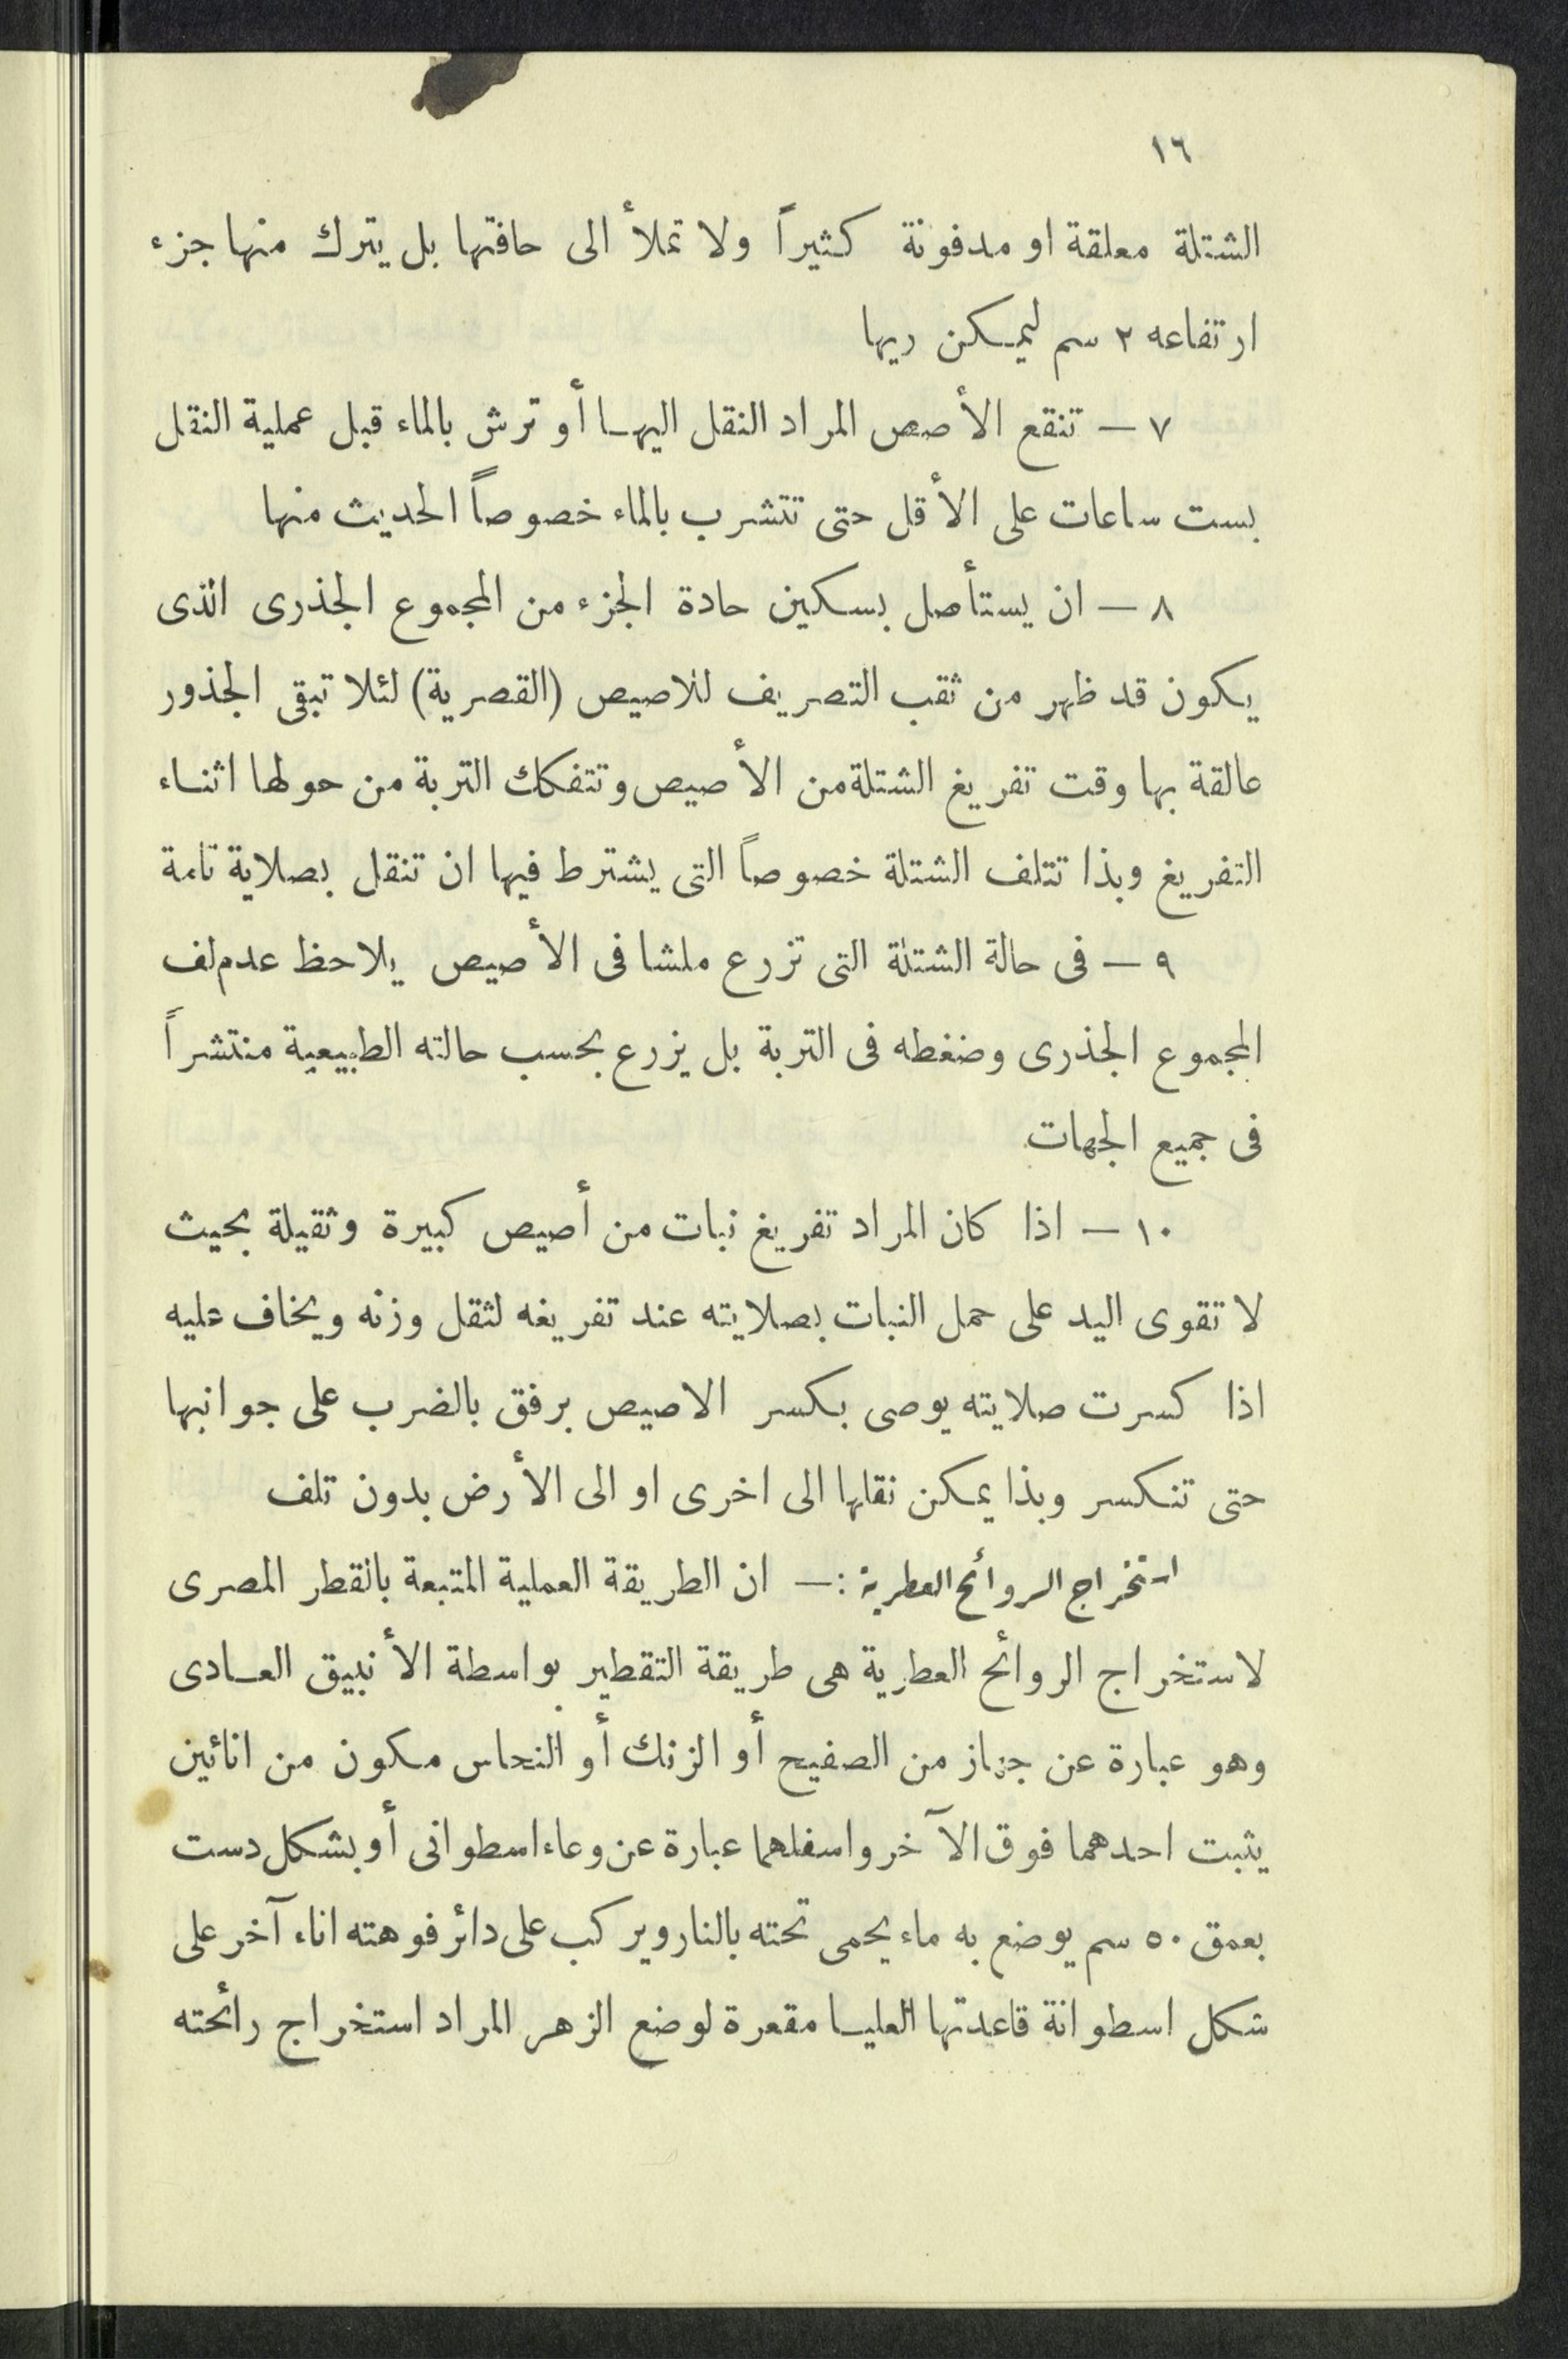 ١٦
الشتلة معلقة او مدفونة كثيراً ولا تملأ الى حافتها بل يترك منها جزء
ارتفاعه ٢ سم ليمكن ريها
٧ — تنقع الأصص المراد النقل اليها أو ترش بالماء قبل عملية النقل
بست ساعات على الأقل حتى تتشرب بالماء خصوصاً الحديث منها
٨ — ان يستأصل بسكين حادة الجزء من المجموع الجذرى الذى
يكون قد ظهر من ثقب التصريف للاصيص (القصرية) لئلا تبقى الجذور
عالقة بها وقت تفريغ الشتلة من الأصيص وتتفكك التربة من حولها اثناء
التفريغ وبذا تتلف الشتلة خصوصاً التى يشترط فيها ان تنقل بصلاية تامة
٩ — فى حالة الشتلة التى تزرع ملشا فى الأصيص يلاحظ عدم لف
المجموع الجذرى وضغطه فى التربة بل يزرع بحسب حالته الطبيعية منتشراً
فى جميع الجهات
١٠ — اذا كان المراد تفريغ نبات من أصيص كبيرة وثقيلة بحيث
لا تقوى اليد على حمل النبات بصلايته عند تفريغه لثقل وزنه ويخاف عليه
اذا كسرت صلايته يوصى بكسر الاصيص برفق بالضرب على جوانبها
حتى تنكسر وبذا يمكن نقلها الى اخرى او الى الأرض بدون تلف
استخراج الروائح العطرية :— ان الطريقة العملية المتبعة بالقطر المصرى
لاستخراج الروائح العطرية هى طريقة التقطير بواسطة الأنبيق العادى
وهو عبارة عن جهاز من الصفيح أو الزنك أو النحاس مكون من انائين
يثبت احدهما فوق الآخر واسفلهما عبارة عن وعاء اسطوانى أو بشكل دست
بعمق ٥٠ سم يوضع به ماء يحمى تحته بالنار ويركب على دائر فوهته اناء آخر على
شكل اسطوانة قاعدتها العليا مقعرة لوضع الزهر المراد استخراج رائحته